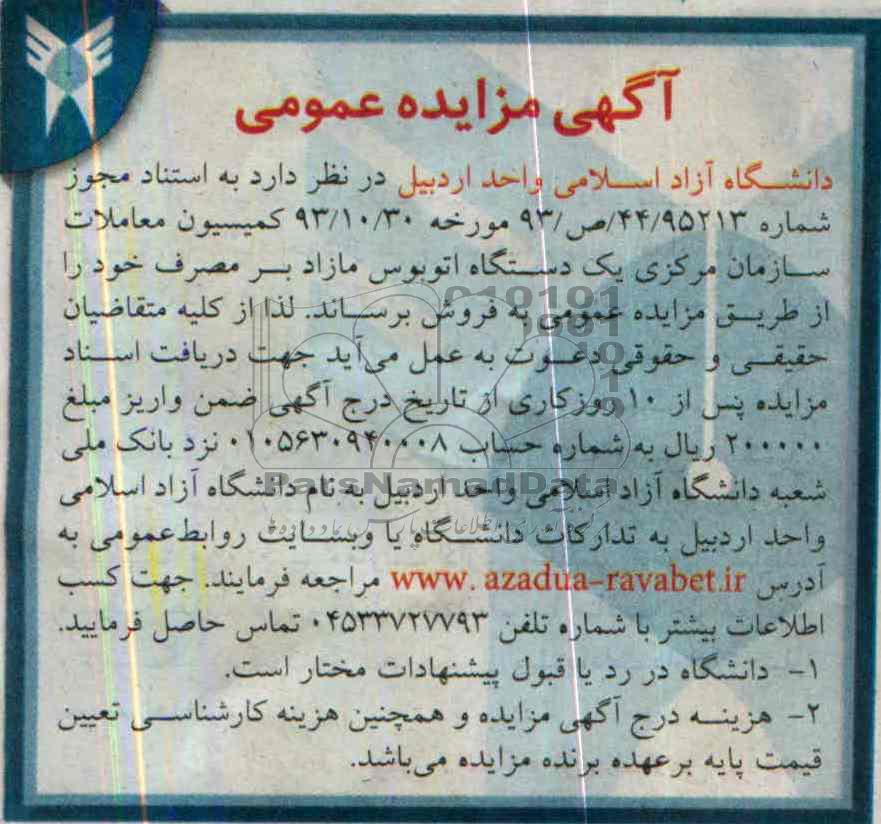 آگهی مزایده عمومی
دانشگاه آزاد اسلامی واحد اردبیل در نظر دارد به استناد مجوز
شماره ۴۴/۹۵۲۱۳/ص/۹۳ مورخه ۹۳/۱۰/۳۰ کمیسیون معاملات
سازمان مرکزی یک دستگاه اتوبوس مازاد بر مصرف خود را
از طریق مزایده عمومی به فروش برساند. لذا از کلیه متقاضیان
حقیقی و حقوقی دعوت به عمل می‌آید جهت دریافت اسناد
مزایده پس از ۱۰ روزکاری از تاریخ درج آگهی ضمن واریز مبلغ
۲۰۰۰۰۰ ریال به شماره حساب ۰۱۰۵۶۳۰۹۴۰۰۰۸ نزد بانک ملی
شعبه دانشگاه آزاد اسلامی واحد اردبیل به نام دانشگاه آزاد اسلامی
واحد اردبیل به تدارکات دانشگاه یا وبسایت روابط عمومی به
آدرس www. azadua-ravabet.ir مراجعه فرمایند. جهت کسب
اطلاعات بیشتر با شماره تلفن ۰۴۵۳۳۷۲۷۷۹۳ تماس حاصل فرمایید.
۱- دانشگاه در رد یا قبول پیشنهادات مختار است.
۲- هزینه درج آگهی مزایده و همچنین هزینه کارشناسی تعیین
قیمت پایه برعهده برنده مزایده می‌باشد.
ParsNamadData